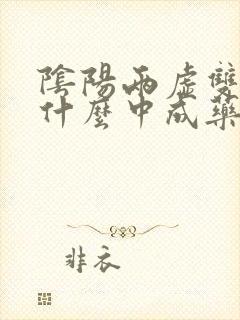 陰陽兩虛雙
什麼中成藥
非衣